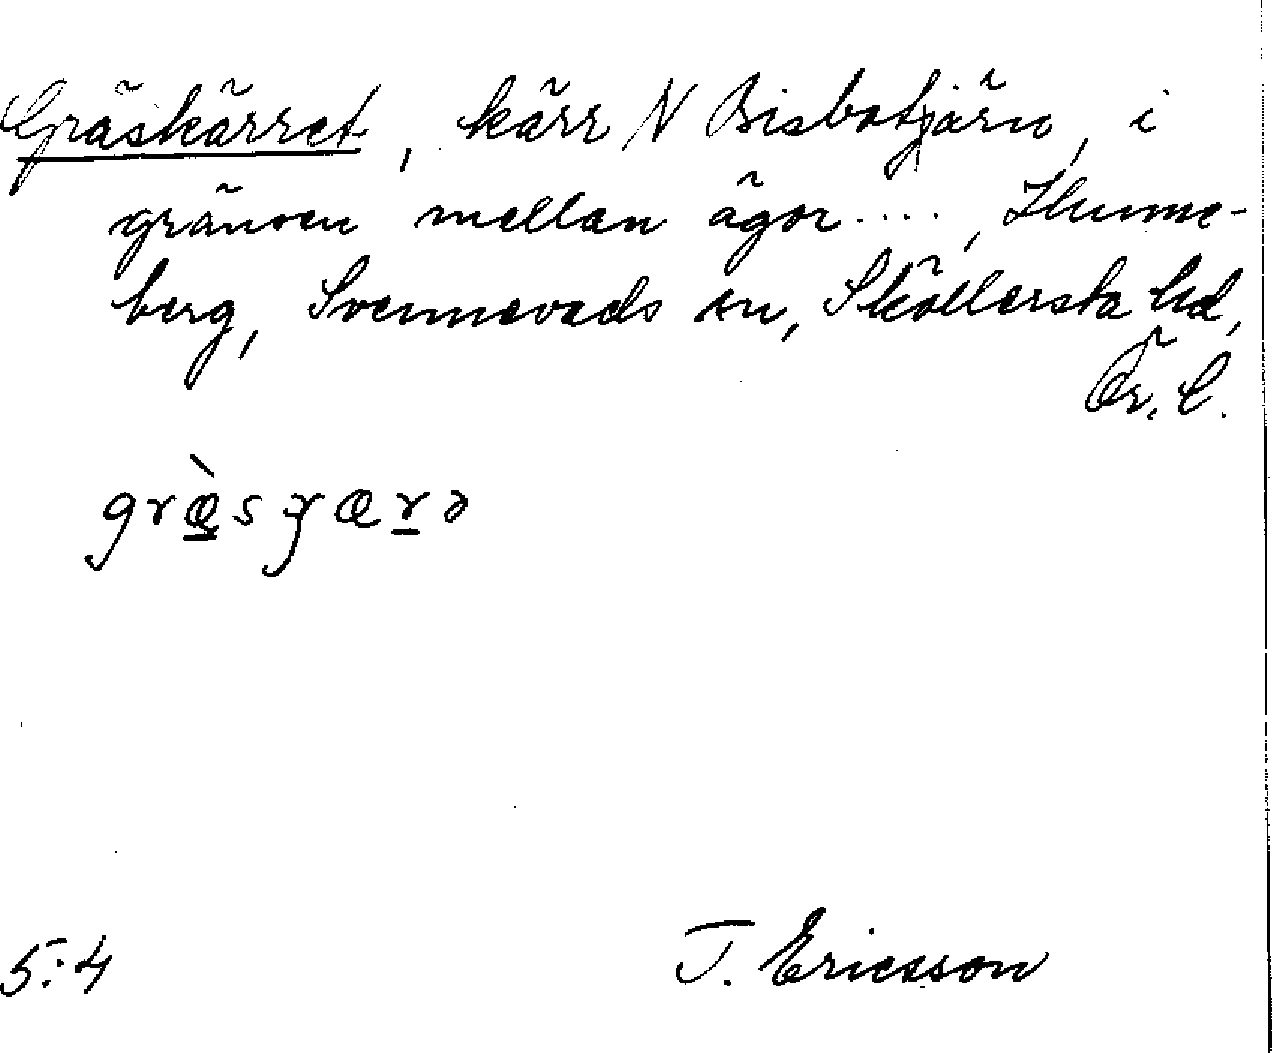 Gräskärret, kärr N Bisbotjärn, i
gränsen mellan ägor ...., Hunne-
berg, Svennevads sn, Sköllersta hd,
Ör. l.
græ̀sɣærə
5:4 T. Ericsson